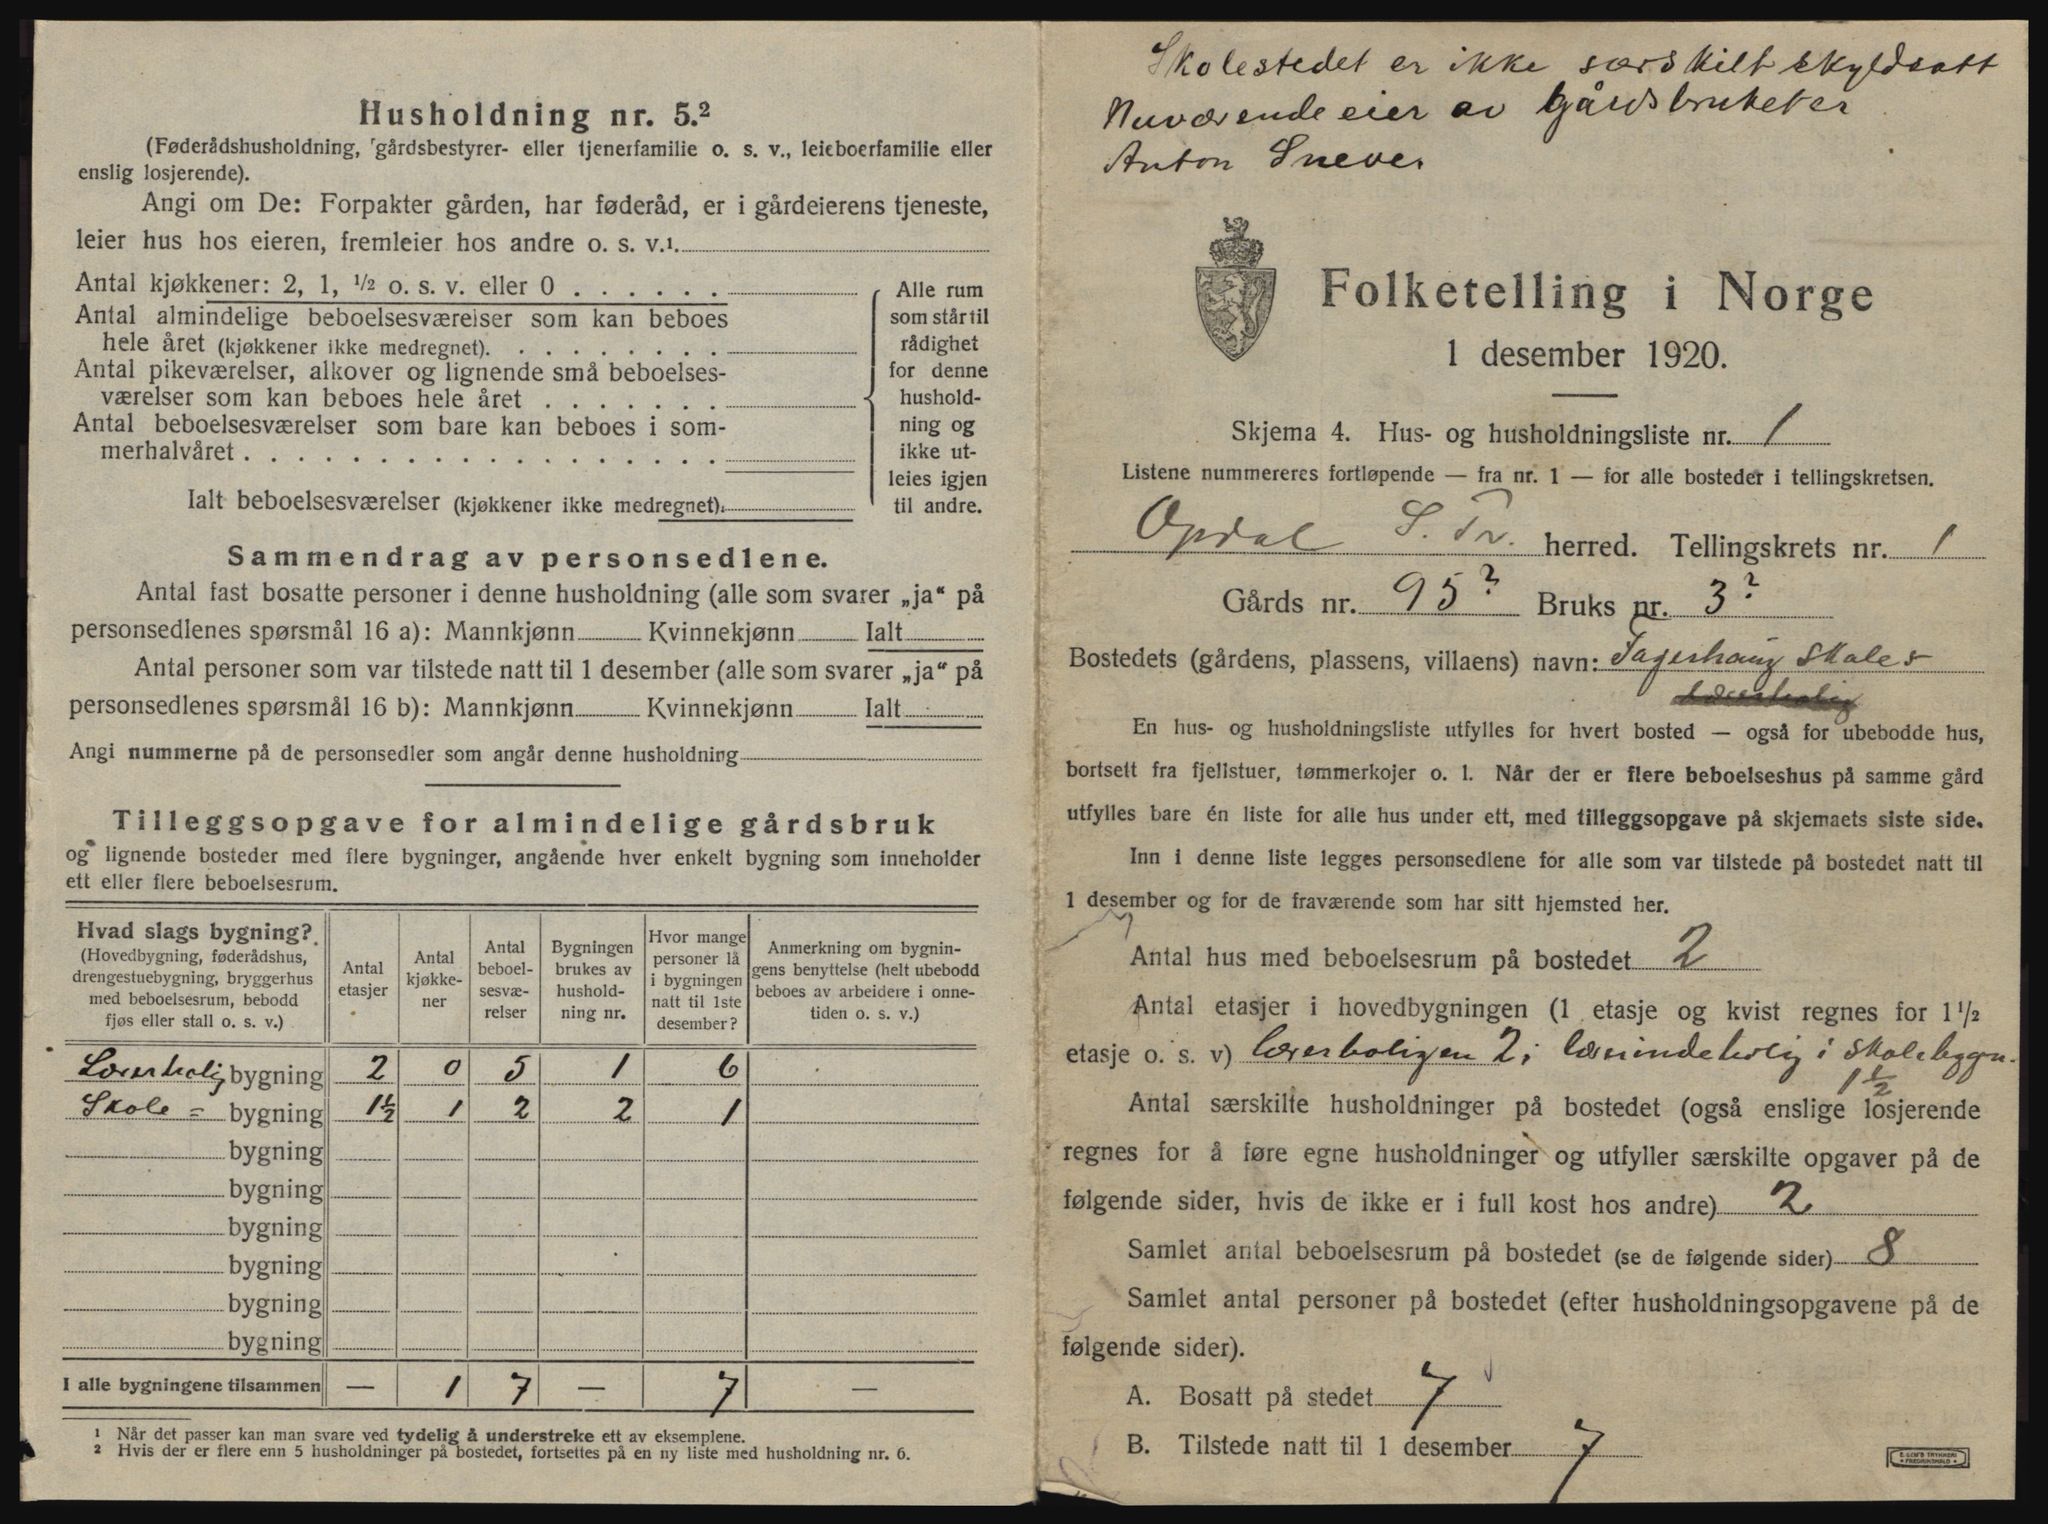 Husholdning nr. 5.²
(Føderådshusholdning, gårdsbestyrer- eller tjenerfamilie o. s. v., leieboerfamilie eller
enslig losjerende).
Angi om De: Forpakter gården, har føderåd, er i gårdeierens tjeneste,
leier hus hos eieren, fremleier hos andre o. s. v.¹
Antal kjøkkener: 2, 1, ½ o. s. v. eller 0
Antal almindelige beboelsesværelser som kan beboes
hele året (kjøkkener ikke medregnet).
Antal pikeværelser, alkover og lignende små beboelses-
værelser som kan beboes hele året
Antal beboelsesværelser som bare kan beboes i som-
merhalvåret
Ialt beboelsesværelser (kjøkkener ikke medregnet).
Alle rum
som står til
rådighet
for denne
hushold-
ning og
ikke ut-
leies igjen
til andre.
Sammendrag av personsedlene.
Antal fast bosatte personer i denne husholdning (alle som svarer „ja“ på
personsedlenes spørsmål 16 a): Mannkjønn Kvinnekjønn Ialt
Antal personer som var tilstede natt til 1 desember (alle som svarer „ja“ på
personsedlenes spørsmål 16 b): Mannkjønn Kvinnekjønn Ialt
Angi nummerne på de personsedler som angår denne husholdning
Tilleggsopgave for almindelige gårdsbruk
og lignende bosteder med flere bygninger, angående hver enkelt bygning som inneholder
ett eller flere beboelsesrum.
Hvad slags bygning?
(Hovedbygning, føderådshus,
drengestuebygning, bryggerhus
med beboelsesrum, bebodd
fjøs eller stall o. s. v.)
Antal
etasjer
Antal
kjøkke-
ner
Antal
beboel-
sesvæ-
relser
Bygningen
brukes av
hushold-
ning nr.
Hvor mange
personer lå
i bygningen
natt til 1ste
desember?
Anmerkning om bygnin-
gens benyttelse (helt ubebodd
beboes av arbeidere i onne-
tiden o. s. v.)
Lærerbolig bygning 2 0 5 1 6
Skole = bygning 1½ 1 2 2 1
bygning
bygning
bygning
bygning
bygning
bygning
I alle bygningene tilsammen — 1 7 — 7 —
¹ Når det passer kan man svare ved tydelig å understreke ett av eksemplene.
² Hvis der er flere enn 5 husholdninger på bostedet, fortsettes på en ny liste med husholdning nr. 6.
Skolestedet er ikke særskilt skyldsatt
Nuværende eier av Gårdsbruket er
Anton Snever
Folketelling i Norge
1 desember 1920.
Skjema 4. Hus- og husholdningsliste nr. 1
Listene nummereres fortløpende — fra nr. 1 — for alle bosteder i tellingskretsen.
Opdal S. Tr. herred. Tellingskrets nr. 1
Gårds nr. 95? Bruks nr. 3?
Bostedets (gårdens, plassens, villaens) navn: Fagerhaug skoles
lærerbolig
En hus- og husholdningsliste utfylles for hvert bosted — også for ubebodde hus,
bortsett fra fjellstuer, tømmerkojer o. l. Når der er flere beboelseshus på samme gård
utfylles bare én liste for alle hus under ett, med tilleggsopgave på skjemaets siste side.
Inn i denne liste legges personsedlene for alle som var tilstede på bostedet natt til
1 desember og for de fraværende som har sitt hjemsted her.
Antal hus med beboelsesrum på bostedet 2
Antal etasjer i hovedbygningen (1 etasje og kvist regnes for 1½
etasje o. s. v) lærerboligen 2; lærerindebolig i skolebygn.
1½
Antal særskilte husholdninger på bostedet (også enslige losjerende
regnes for å føre egne husholdninger og utfyller særskilte opgaver på de
følgende sider, hvis de ikke er i full kost hos andre) 2
Samlet antal beboelsesrum på bostedet (se de følgende sider) 8
Samlet antal personer på bostedet (efter husholdningsopgavene på de
følgende sider).
A. Bosatt på stedet 7
B. Tilstede natt til 1 desember 7
E. SEM'S TRYKKERI
FREDRIKSHALD